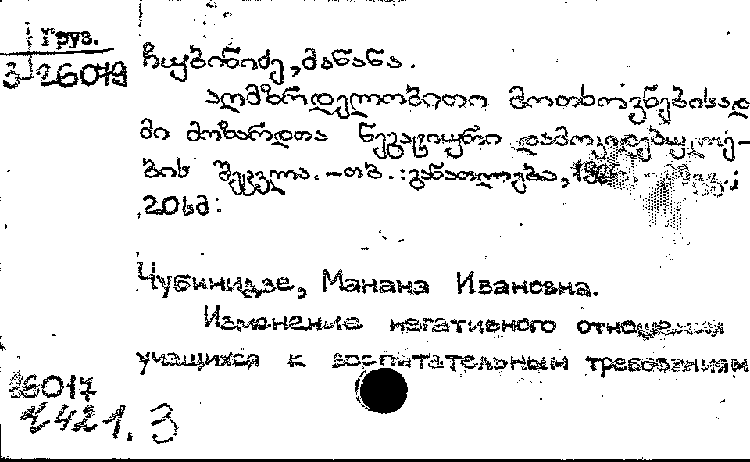 Груз.
3-26079
ჩუბინიძე, მანანა.
აღმზრდელობითი მოთხოვნებისად
მი მოზარდთა ნეგატიური დამოკიდებულე-
ბის შეცვლა. -თბ.:განათლება,
20სმ:
Чубинидзе, Манана Ивановна.
Изменение негативного отношения
учащихся к воспитательным требованиям
26017
2421.3